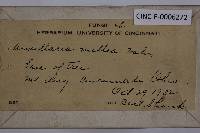 CINC-F-0006272
FUNGI of
HERBARIUM UNIVERSITY OF CINCINNATI
Armillaria mellea Vahl.
Base of Tree
Mt. Airy Cincinnati Ohio
Oct 29 1932
DET.